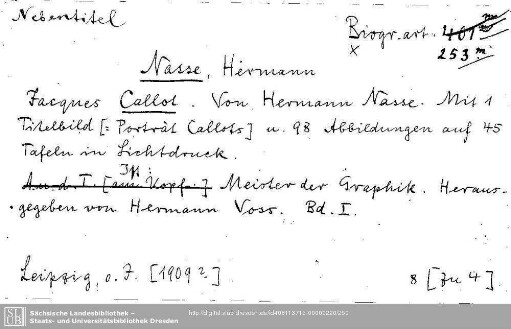 Nebentitel
Biogr. art. 401 m
x 253 m
Nasse, Hermann
Jacques Callot. Von Hermann Nasse. Mit 1
Titelbild [= Porträt Callots] u. 98 Abbildungen auf 45
Tafeln in Lichtdruck.
A. u. d. T. [am Kopf:] Meister der Graphik. Heraus-
gegeben von Hermann Voss. Bd. I.
Leipzig, o. J. [1909?]. 8 [zu 4].
SLUB
Sächsische Landesbibliothek –
Staats- und Universitätsbibliothek Dresden